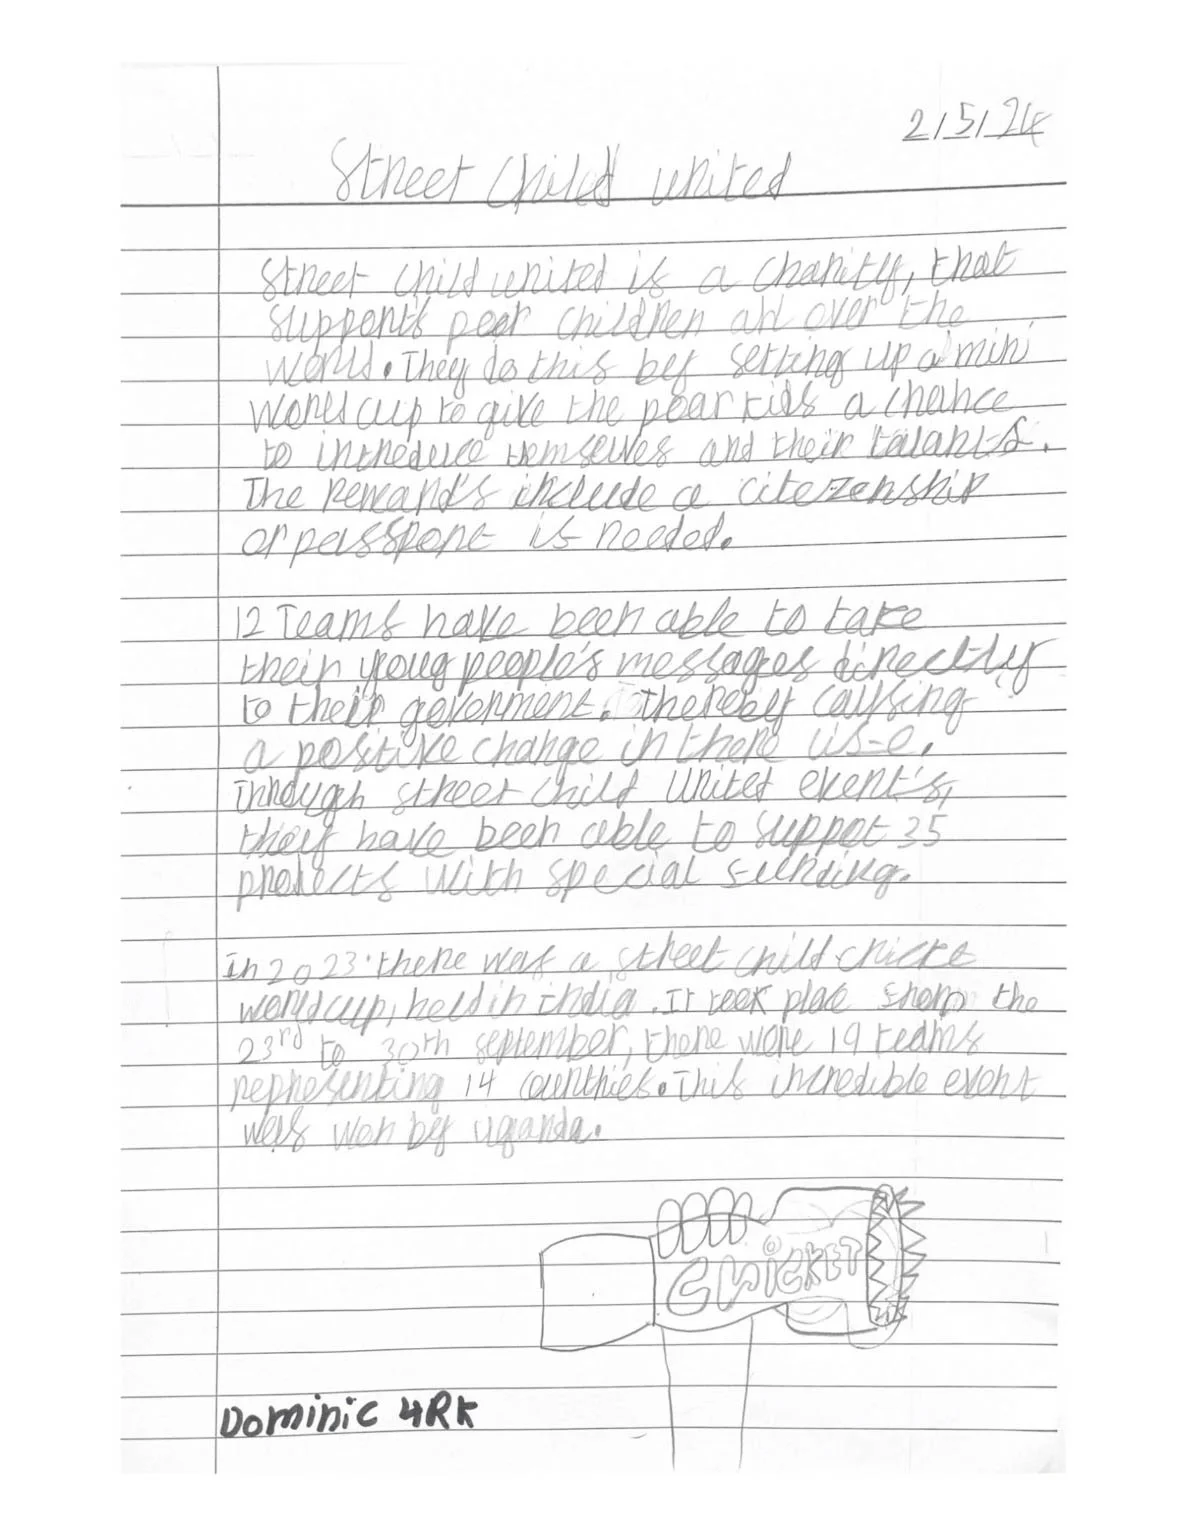 2/5/24
Street Child united
Street child united is a charity, that
support's poor children all over the
world. They do this by setting up a mini
world cup to give the poor kids a chance
to introduce themselves and their talants.
The reward's include a citezenship
or passport is needed.
12 Teams have been able to take
their young people's messages directly
to their goverment. Thereby causing
a positive change in there
Through street child united event's,
they have been able to suppot 35
projects with special funding.
In 2023 there was a street child cricke
world cup, held in india. It took place from the
23rd to 30th september, there were 19 teams
representing 14 countries. This incredible event
was won by uganda.
CRICKET
Dominic 4RK